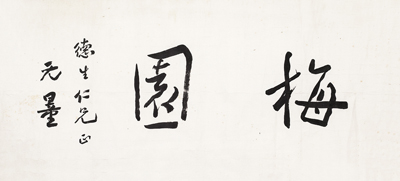 梅園
德生仁兄正
无量